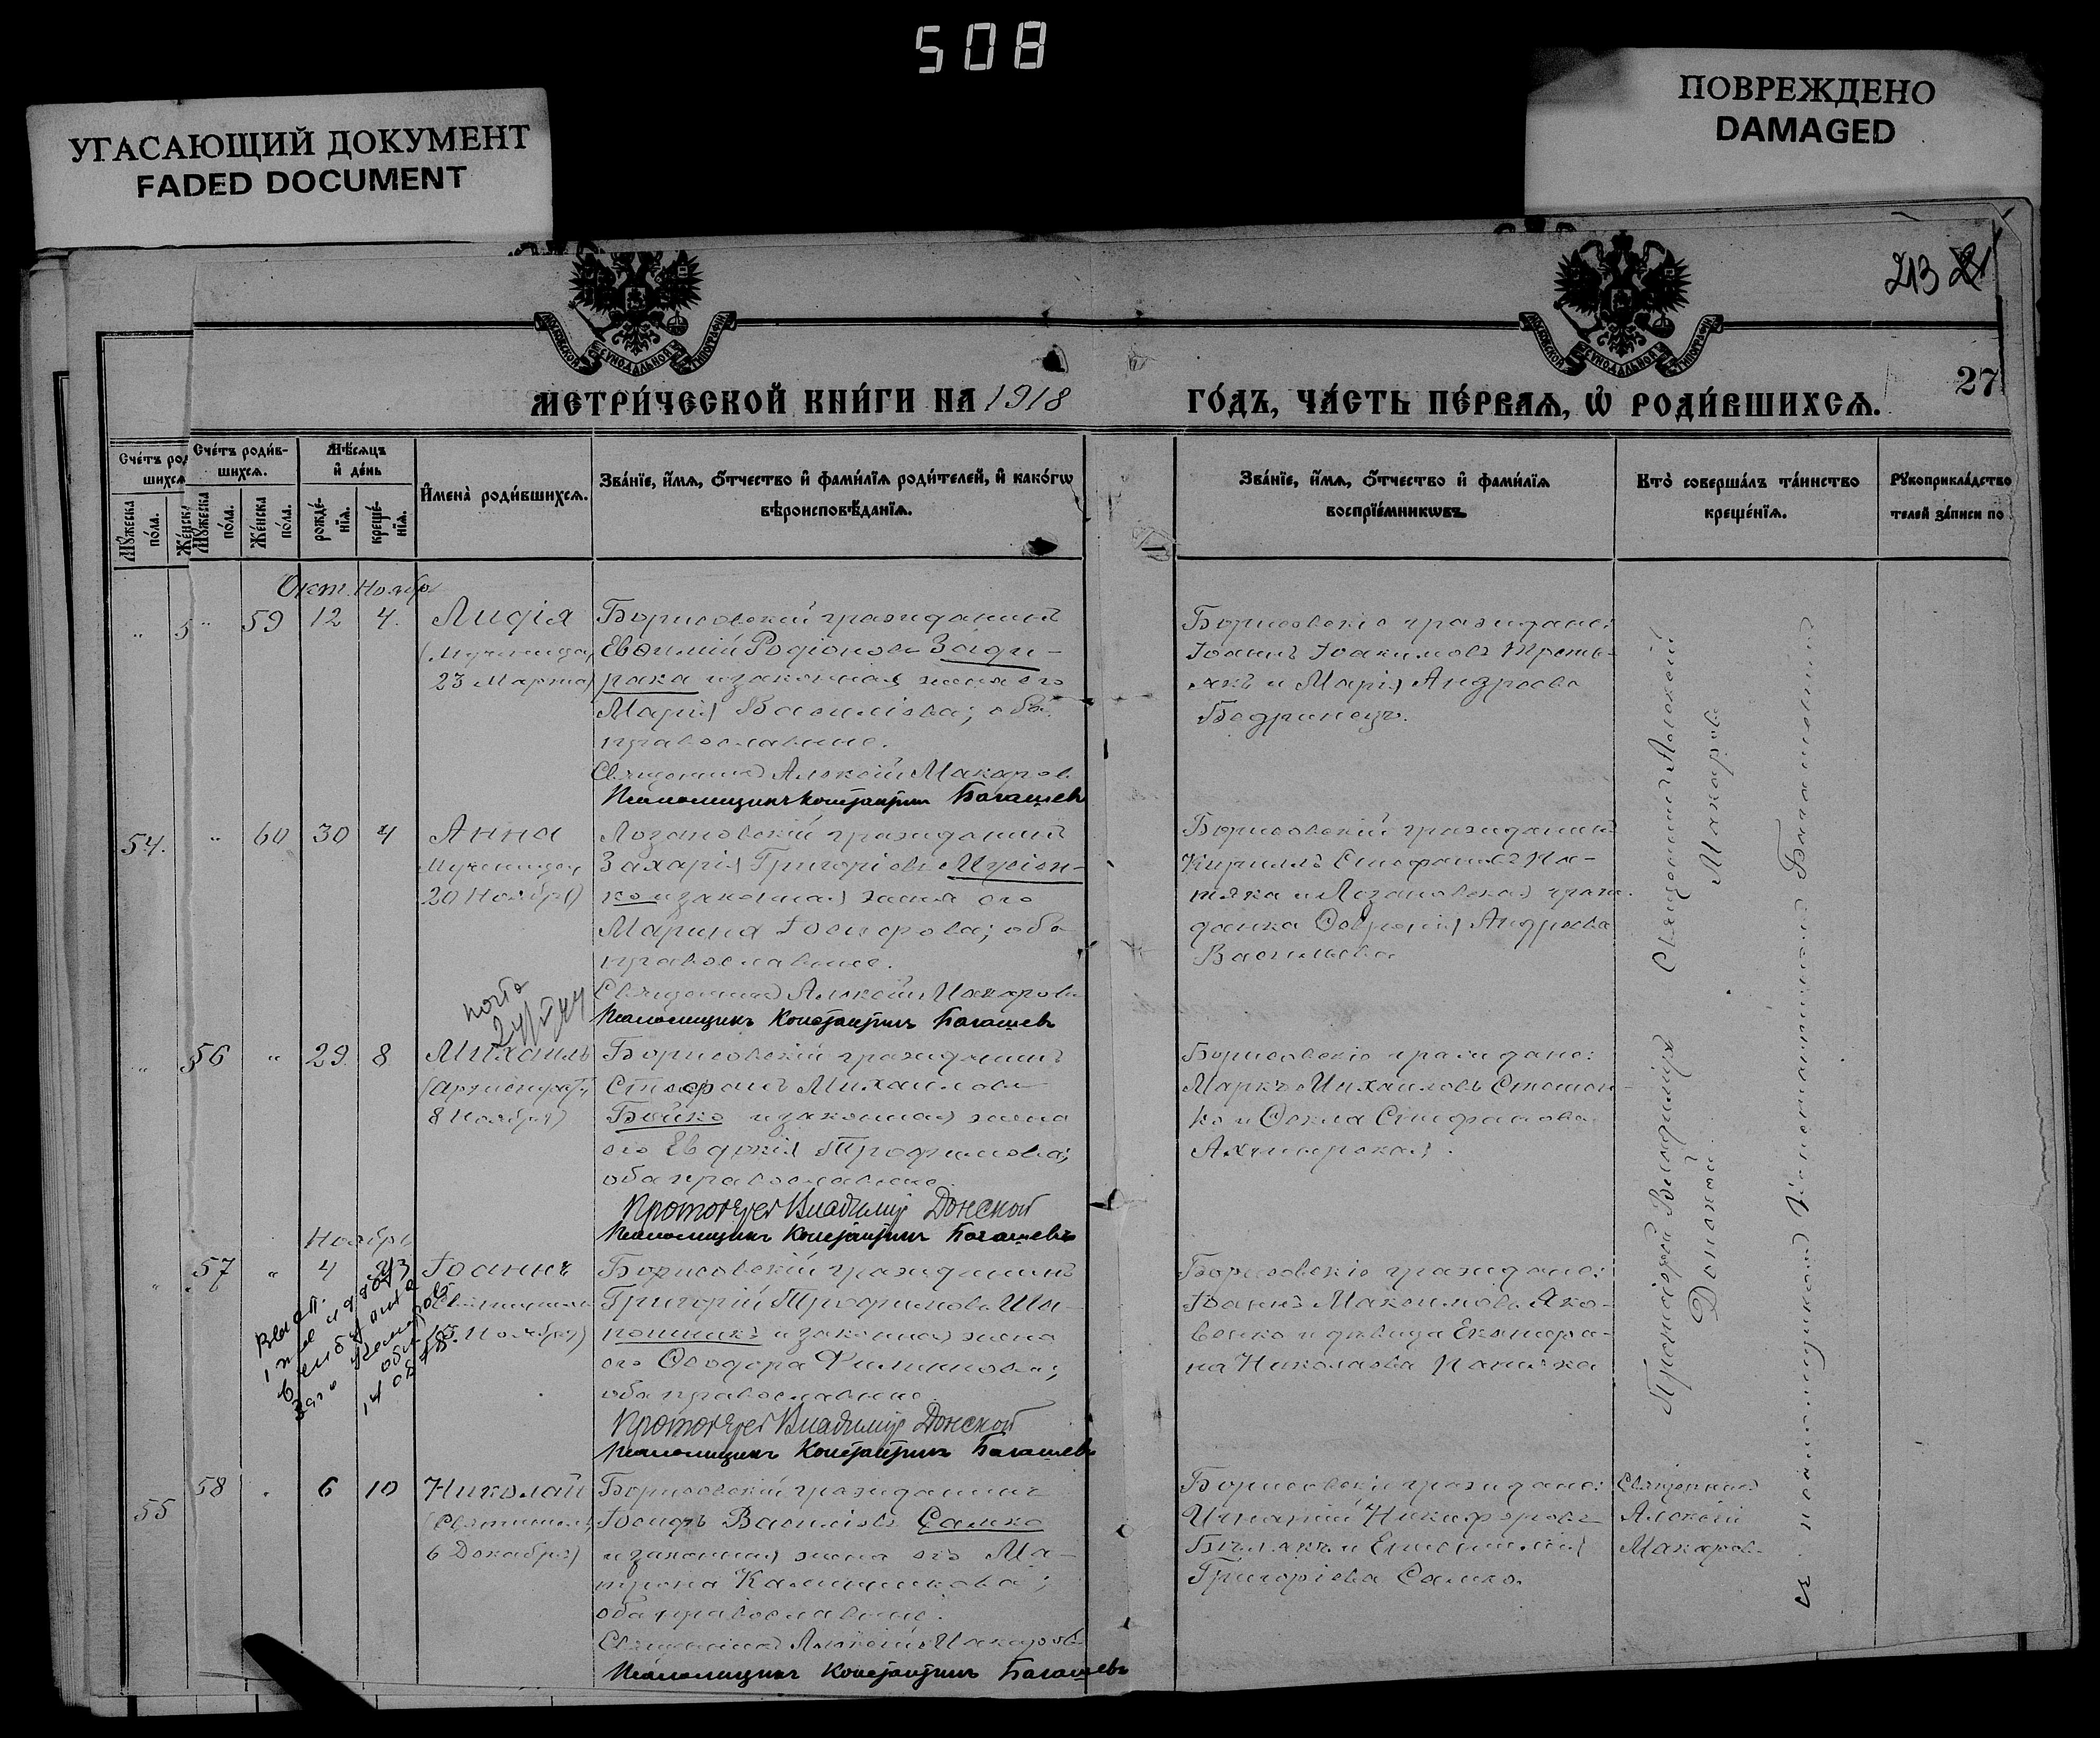 508
УГАСАЮЩИЙ ДОКУМЕНТ
FADED DOCUMENT
ПОВРЕЖДЕНО
DAMAGED
213
27
МЕТРИ́ЧЕСКОЙ КНИ́ГИ НА 1918 ГО́ДЪ, ЧА́СТЬ ПЕ́РВАѦ, Ѡ РОДИ́ВШИХСѦ.
Сче́тъ роди́в-
шихсѧ.
Мѣ́сѧцъ
и҆ де́нь
Мꙋ́жеска по́ла.
Же́нска по́ла.
рожде́-
нїѧ.
креще́-
нїѧ.
И҆мена̀ роди́вшихсѧ.
Зва́нїе, и҆́мѧ, ѻ҆́тчество и҆ фами́лїѧ роди́телей, и҆ како́гѡ
вѣроисповѣ́данїѧ.
Зва́нїе, и҆́мѧ, ѻ҆́тчество и҆ фами́лїѧ
воспрїе́мникѡвъ
Кто̀ соверша́лъ та́инство
креще́нїѧ.
Рꙋкоприкла́дство
телей за́писи по
Окт. Ноябр
59 12 4. Лидія
(Мученица,
23 Марта)
Борисовскій гражданинъ
Евѳимій Родіоновъ Зади-
рака и законная жена его
Марія Васильева; оба
православные.
Священникъ Алексій Макаровъ
Псаломщикъ Константинъ Багашевъ
Борисовскіе граждане:
Іоаннъ Іоакимовъ Треть-
якъ и Марія Андреева
Бедринецъ.
54.
60 30 4 Анна
Мученица,
20 Ноября)
Лозановскій гражданинъ
Захарія Григоріевъ Мусіен-
ко и законная жена его
Марина Іосифова; оба
православные.
Священникъ Алексій Макаровъ
Псаломщикъ Константинъ Багашевъ
Борисовскій гражданинъ
Кириллъ Стефановъ
и Лозановская граж-
данка Ѳевронія Андреева
Васильева
56 29 8 Михаилъ
8 Ноября)
Борисовскій гражданинъ
Стефанъ Михаиловъ
Бойко и законная жена
его Евдокія Трофимова;
оба православные.
Протоіерей Владиміръ Донской
Псаломщикъ Константинъ Багашевъ
Борисовскіе граждане:
Маркъ Михаиловъ
и Ѳекла Стефанова
Ноябрь
57 4 Іоаннъ
Ноября)
Борисовскій гражданинъ
Григорій Трофимовъ Ша-
пошникъ и законная жена
его Ѳеодора Филиппова;
оба православные.
Протоіерей Владиміръ Донской
Псаломщикъ Константинъ Багашевъ
Борисовскіе граждане:
Іоаннъ Максимовъ Яко-
венко и дѣвица Екатери-
на Николаева
55
58 6 10 Николай
(Святитель,
6 Декабря)
Борисовскій гражданинъ
Іосифъ Васильевъ Салко
и законная жена его Ма-
трона Калинникова;
оба православные.
Священникъ Алексій Макаровъ
Псаломщикъ Константинъ Багашевъ
Борисовскіе граждане:
Игнатій Никифоровъ
Григоріева Салко.
Священникъ
Алексій
Макаровъ
Священникъ Алексій
Макаровъ
Протоіерей Владиміръ
Донской
съ псаломщикомъ Константиномъ Багашевымъ